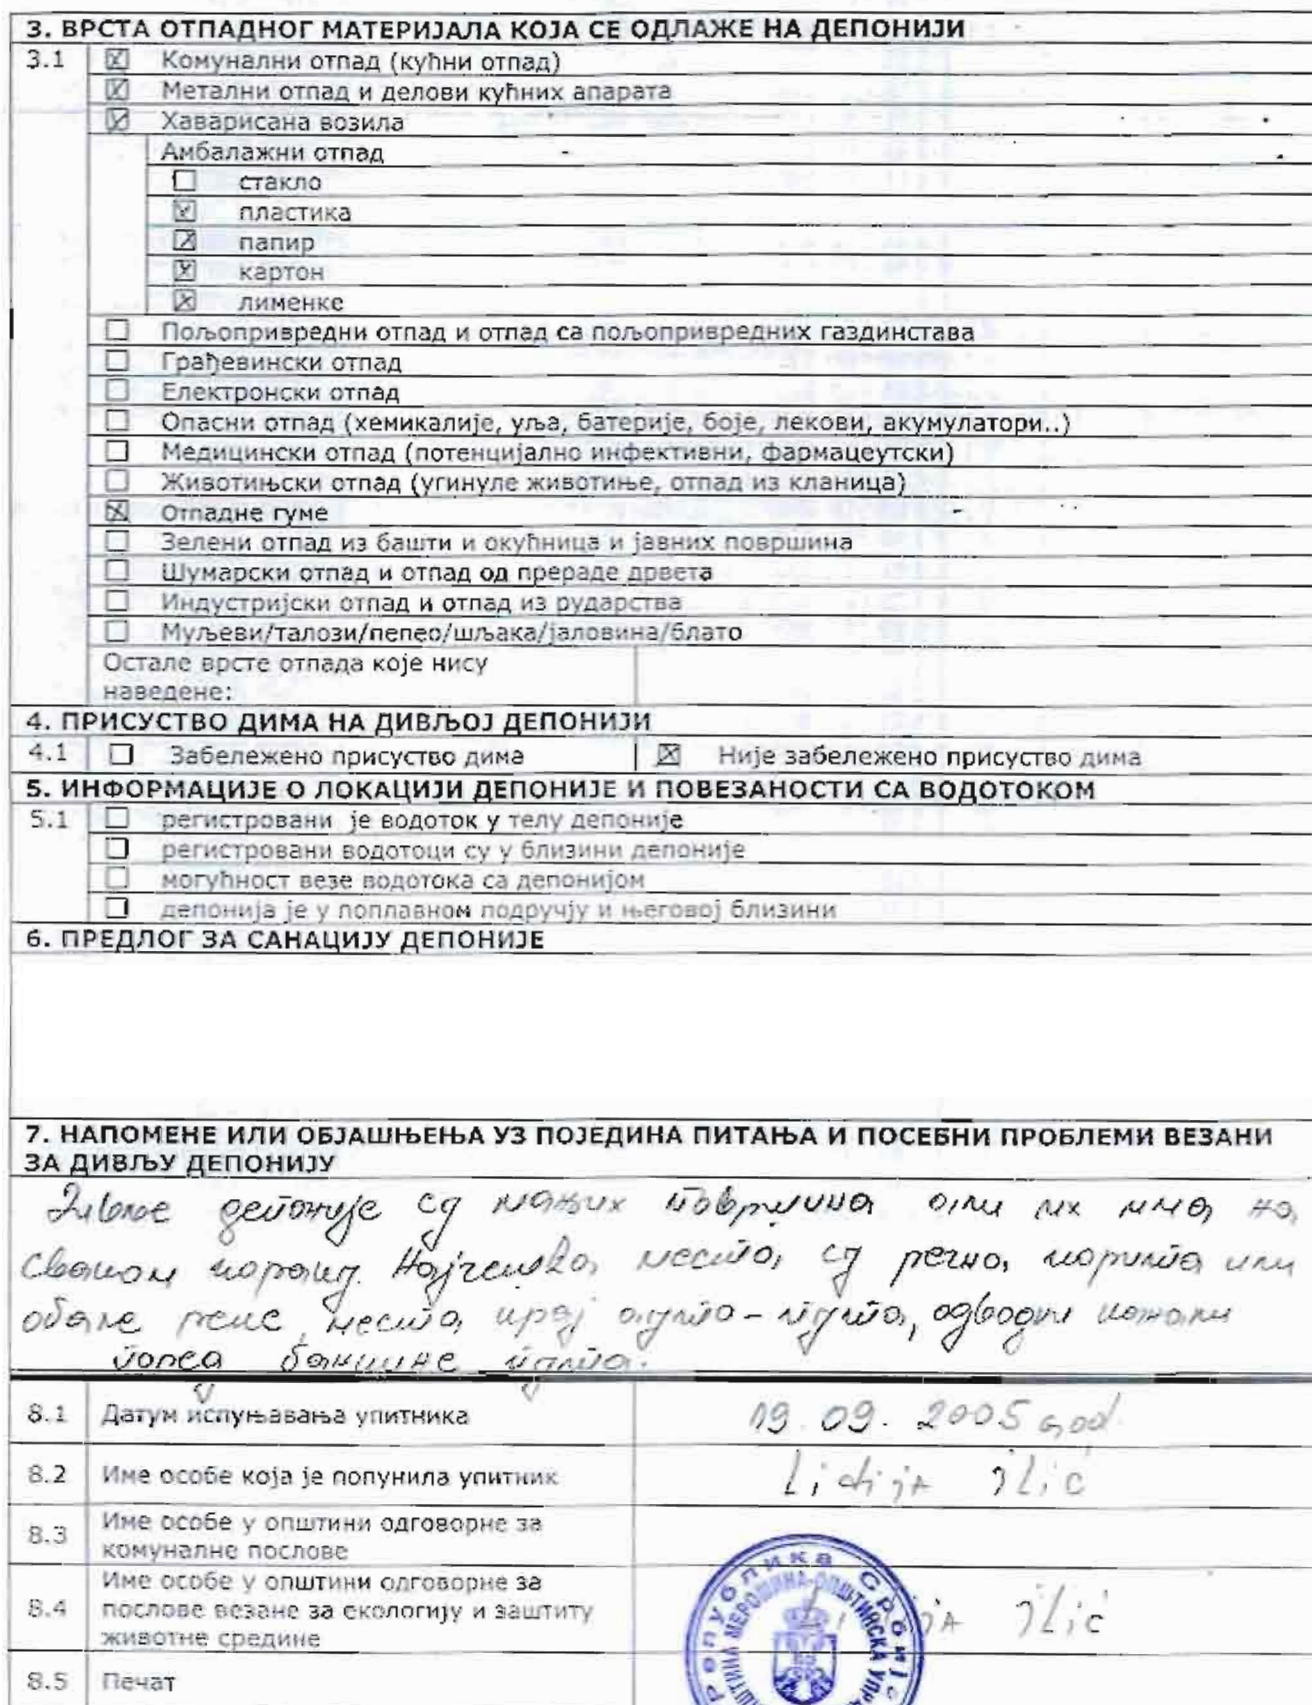 3. ВРСТА ОТПАДНОГ МАТЕРИЈАЛА КОЈА СЕ ОДЛАЖЕ НА ДЕПОНИЈИ
3.1 ☒ Комунални отпад (кућни отпад)
☒ Метални отпад и делови кућних апарата
☒ Хаварисана возила
Амбалажни отпад
☐ стакло
☒ пластика
☒ папир
☒ картон
☒ лименке
☐ Пољопривредни отпад и отпад са пољопривредних газдинстава
☐ Грађевински отпад
☐ Електронски отпад
☐ Опасни отпад (хемикалије, уља, батерије, боје, лекови, акумулатори..)
☐ Медицински отпад (потенцијално инфективни, фармацеутски)
☐ Животињски отпад (угинуле животиње, отпад из кланица)
☒ Отпадне гуме
☐ Зелени отпад из башти и окућница и јавних површина
☐ Шумарски отпад и отпад од прераде дрвета
☐ Индустријски отпад и отпад из рударства
☐ Муљеви/талози/пепео/шљака/јаловина/блато
Остале врсте отпада које нису
наведене:
4. ПРИСУСТВО ДИМА НА ДИВЉОЈ ДЕПОНИЈИ
4.1 ☐ Забележено присуство дима ☒ Није забележено присуство дима
5. ИНФОРМАЦИЈЕ О ЛОКАЦИЈИ ДЕПОНИЈЕ И ПОВЕЗАНОСТИ СА ВОДОТОКОМ
5.1 ☐ регистровани је водоток у телу депоније
☐ регистровани водотоци су у близини депоније
☐ могућност везе водотока са депонијом
☐ депонија је у поплавном подручју и његовој близини
6. ПРЕДЛОГ ЗА САНАЦИЈУ ДЕПОНИЈЕ
7. НАПОМЕНЕ ИЛИ ОБЈАШЊЕЊА УЗ ПОЈЕДИНА ПИТАЊА И ПОСЕБНИ ПРОБЛЕМИ ВЕЗАНИ
ЗА ДИВЉУ ДЕПОНИЈУ
Дивље депоније су мањих површина али их има на
сваком кораку. Најчешћа места су речна корита или
обале реке, места крај ауто-пута, одводни канали
поред
8.1 Датум испуњавања упитника 19.09.2005 god.
8.2 Име особе која је попунила упитник Lidija Ilić
8.3 Име особе у општини одговорне за
комуналне послове
8.4 Име особе у општини одговорне за
послове везане за екологију и заштиту
животне средине
Ilić
8.5 Печат
Република Србија
МЕРОШИНА-ОПШТИНСКА